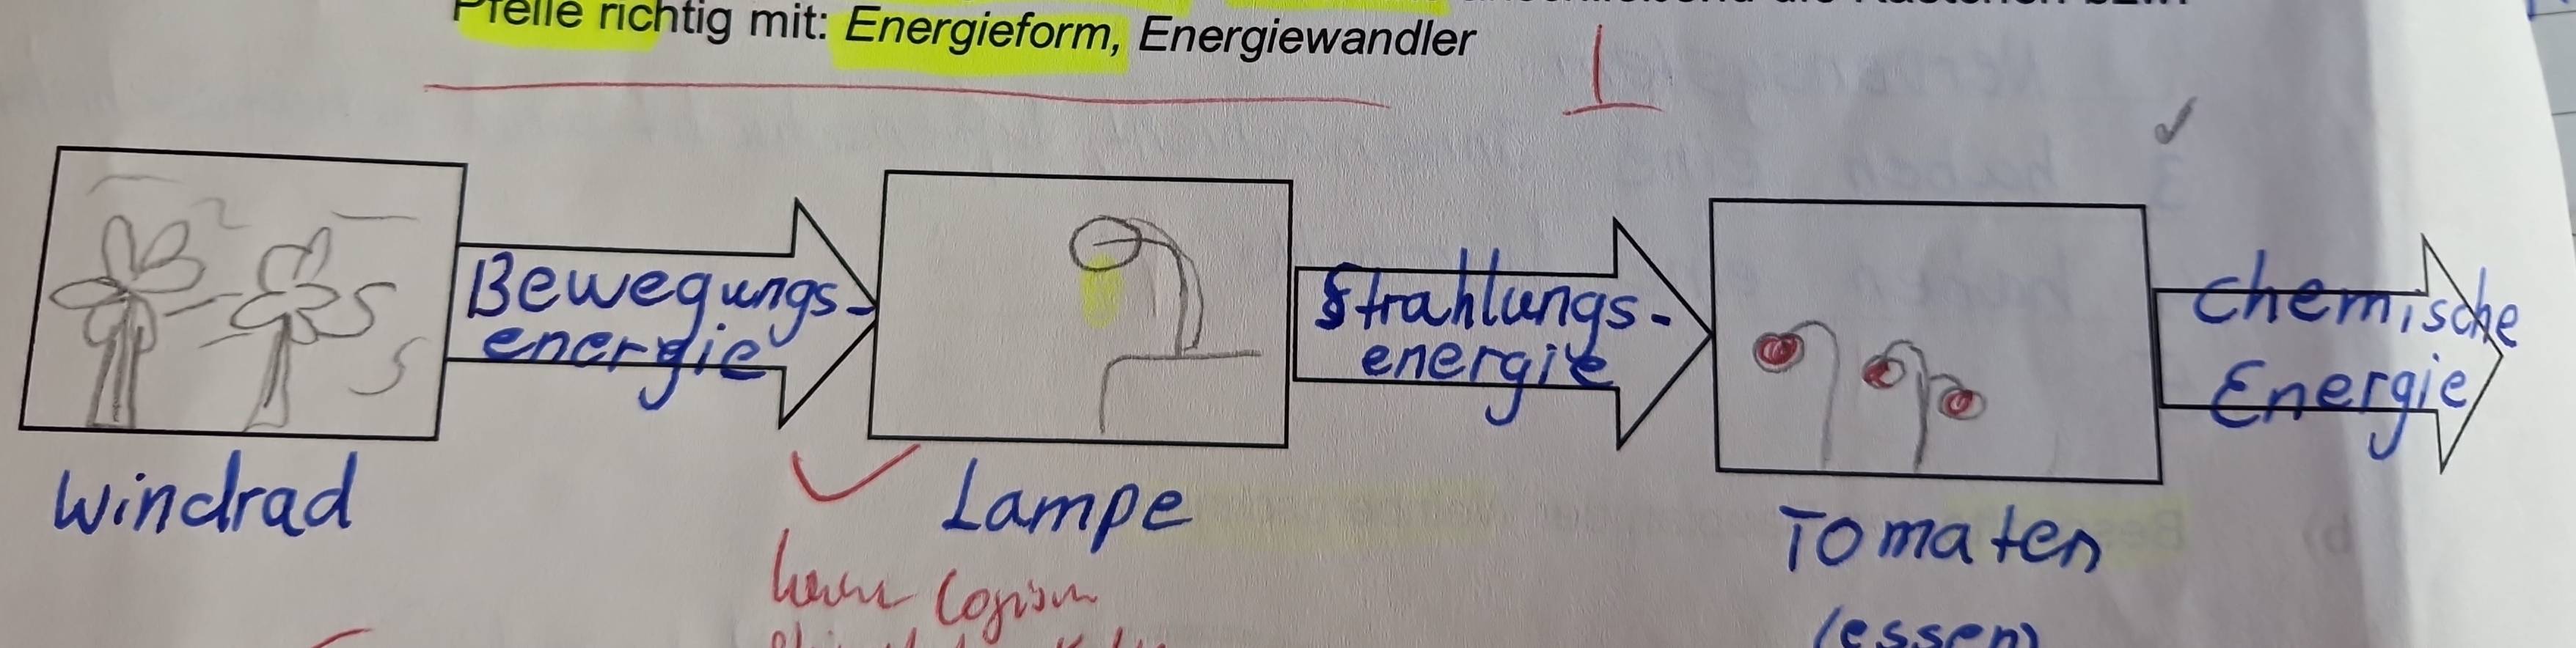 Pfeile richtig mit: Energieform, Energiewandler
1
Bewegungs-
energie
Strahlungs-
energie
chemische
Energie
Windrad
Lampe
Tomaten
(essen)